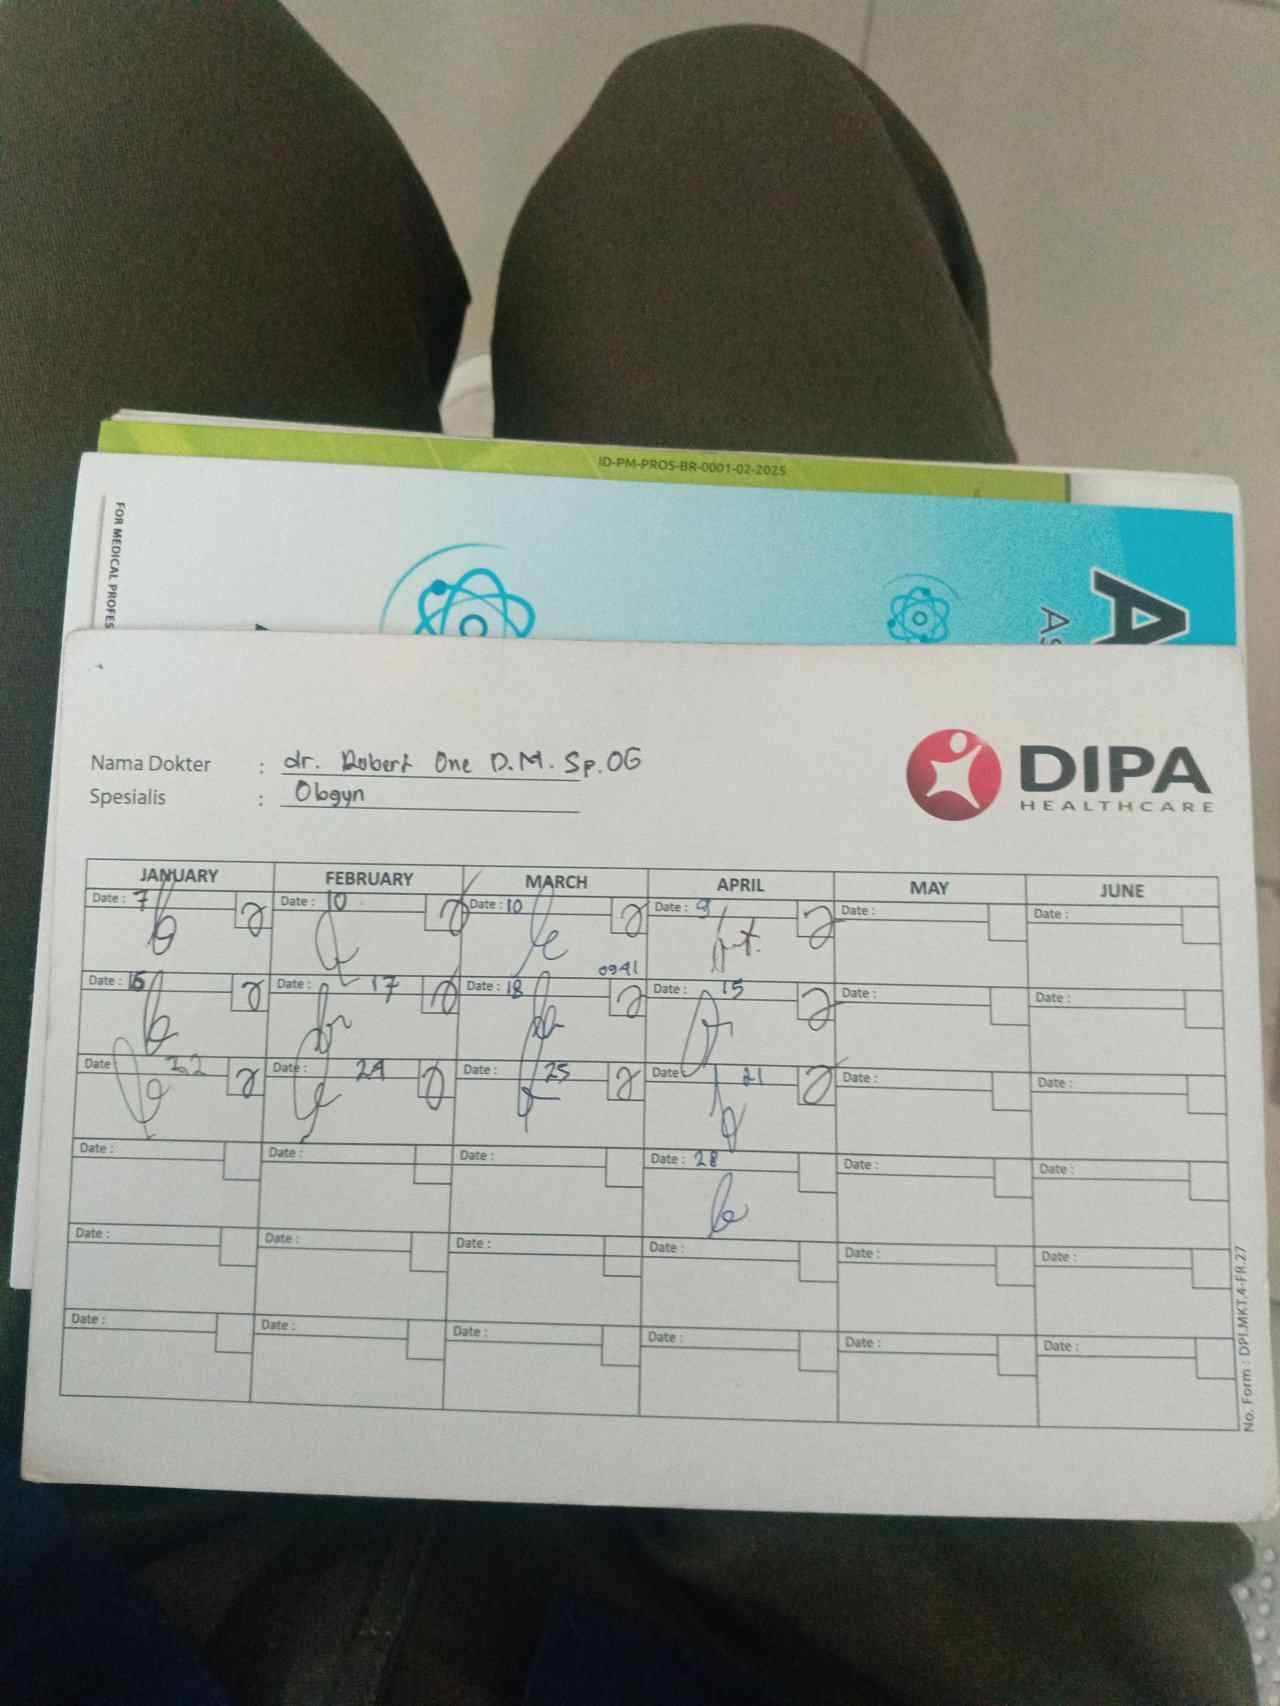 ID-PM-PROS-BR-0001-02-2025
FOR MEDICAL PROFES
A
As
DIPA
HEALTHCARE
Nama Dokter : dr. Robert One D.M. Sp.OG
Spesialis : Obgyn
JANUARY FEBRUARY MARCH APRIL MAY JUNE
Date : 7 Date : 10 Date : 10 Date : 9 Date : Date :
0941
Date : 15 Date : 17 Date : 18 Date : 15 Date : Date :
Date : 22 Date : 24 Date : 25 Date : 21 Date : Date :
Date : Date : Date : Date : 28 Date : Date :
Date : Date : Date : Date : Date : Date :
Date : Date : Date : Date : Date : Date :
No. Form : DPI.MKT.4-FR.27